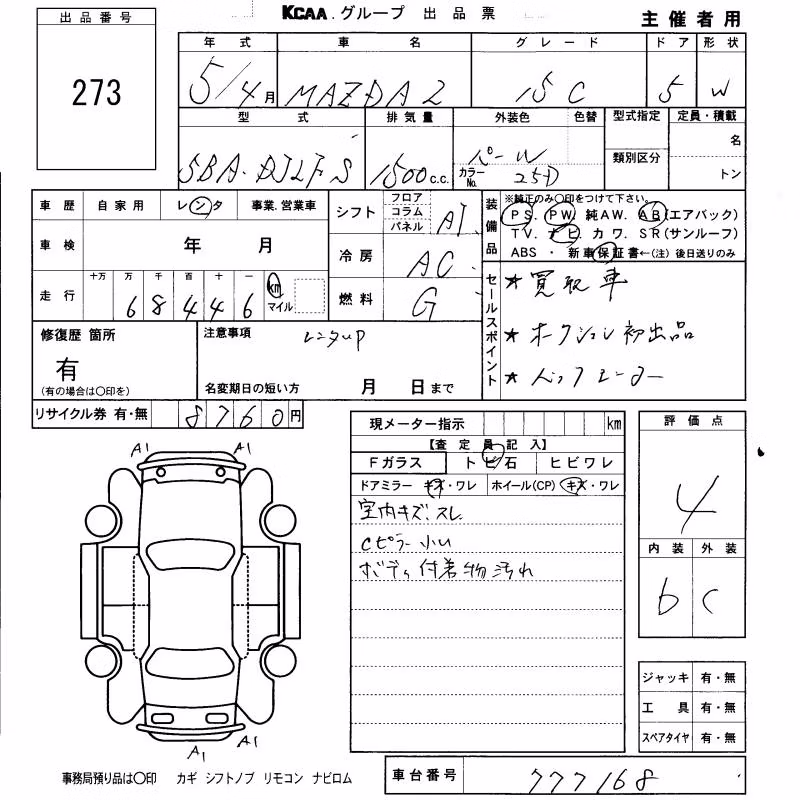 KCAA.グループ 出品票
主催者用
出品番号
273
年式 車名 グレード ドア 形状
5/4月 MAZDA2 15C 5 W
型式 排気量 外装色 色替 型式指定 定員・積載
5BA-DJLFS 1500c.c. パール カラーNo. 25D 類別区分 名
トン
車歴 自家用 レンタ 事業.営業車
車検 年 月
走行 十万 万 千 百 十 一
68446 km マイル
シフト フロア コラム パネル AT
冷房 AC
燃料 G
装備品 ※純正のみ〇印をつけて下さい。
PS. PW. 純AW. AB(エアバック)
TV. ナビ. カワ. SR(サンルーフ)
ABS ・ 新車保証書←(注) 後日送りのみ
セールスポイント
★ 買取車
★ オークション初出品
修復歴 箇所
有
(有の場合は〇印を)
注意事項 レンタUP
名変期日の短い方 月 日まで
リサイクル券 有・無 8760円
現メーター指示 km
【査定員記入】
Fガラス トビ石 ヒビワレ
ドアミラー キズ・ワレ ホイール(CP) キズ・ワレ
室内キズ、スレ
Cピラー小U
ボディ付着物汚れ
評価点
4
内装 外装
b C
A1 A1
A1 A1
ジャッキ 有・無
工具 有・無
スペアタイヤ 有・無
事務局預り品は〇印 カギ シフトノブ リモコン ナビロム
車台番号 777168